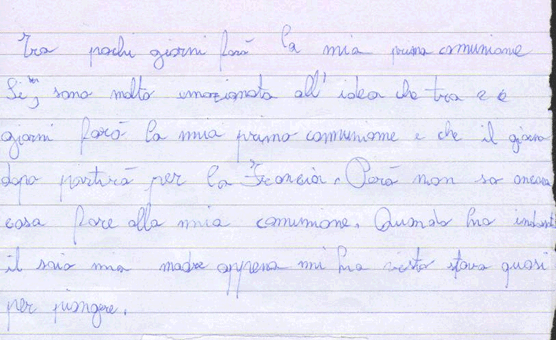 Tra pochi giorni farò la mia prima comunione
Si, sono molto emozionata all'idea che tra
giorni farò la mia prima comunione e che il giorno
dopo partirò per la Francia. Però non so ancora
cosa fare alla mia comunione. Quando ho
il saio mia madre appena mi ha vista stava quasi
per piangere.